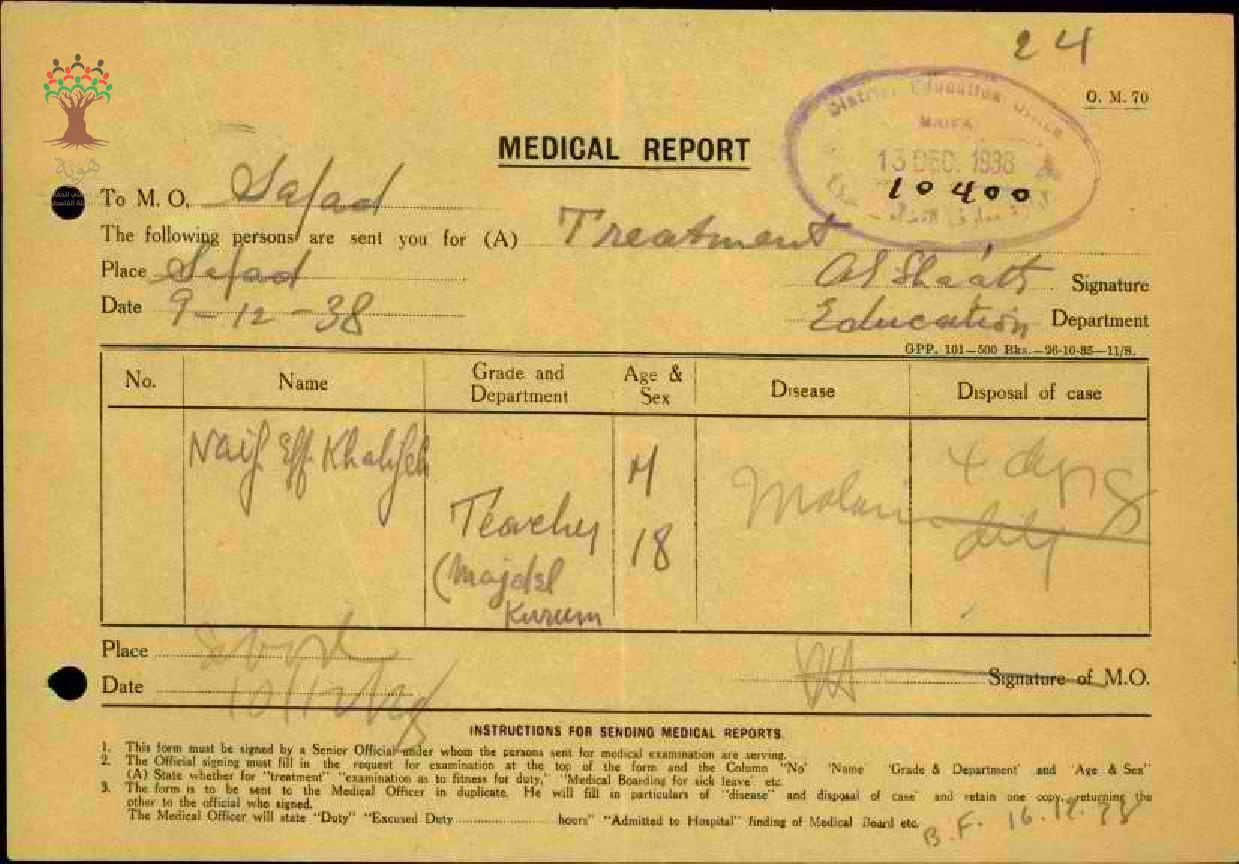 24
O. M. 70
District Education Office
HAIFA
13 DEC. 1938
10400
هوية
MEDICAL REPORT
To M. O. Safad
The following persons are sent you for (A) Treatment
Place Safad
Al Shaath Signature
Date 9-12-38
Education Department
GPP. 101—500 Bks.—26-10-35—11/S.
No. Name Grade and Department Age & Sex Disease Disposal of case
Naif Eff. Khalifeh
M
4 days
Teacher
18
Malaria
duty
(Majdel
Kurum
Place Safad
Date 10/12/38
Signature of M.O.
INSTRUCTIONS FOR SENDING MEDICAL REPORTS.
1. This form must be signed by a Senior Official under whom the persons sent for medical examination are serving.
2. The Official signing must fill in the request for examination at the top of the form and the Column "No" 'Name 'Grade & Department' and 'Age & Sex"
(A) State whether for "treatment" "examination as to fitness for duty," 'Medical Boarding for sick leave' etc.
3. The form is to be sent to the Medical Officer in duplicate. He will fill in particulars of "disease" and disposal of case' and retain one copy, returning the
other to the official who signed.
The Medical Officer will state "Duty" "Excused Duty.................... hours" "Admitted to Hospital" finding of Medical Board etc.
B.F. 16.12.38